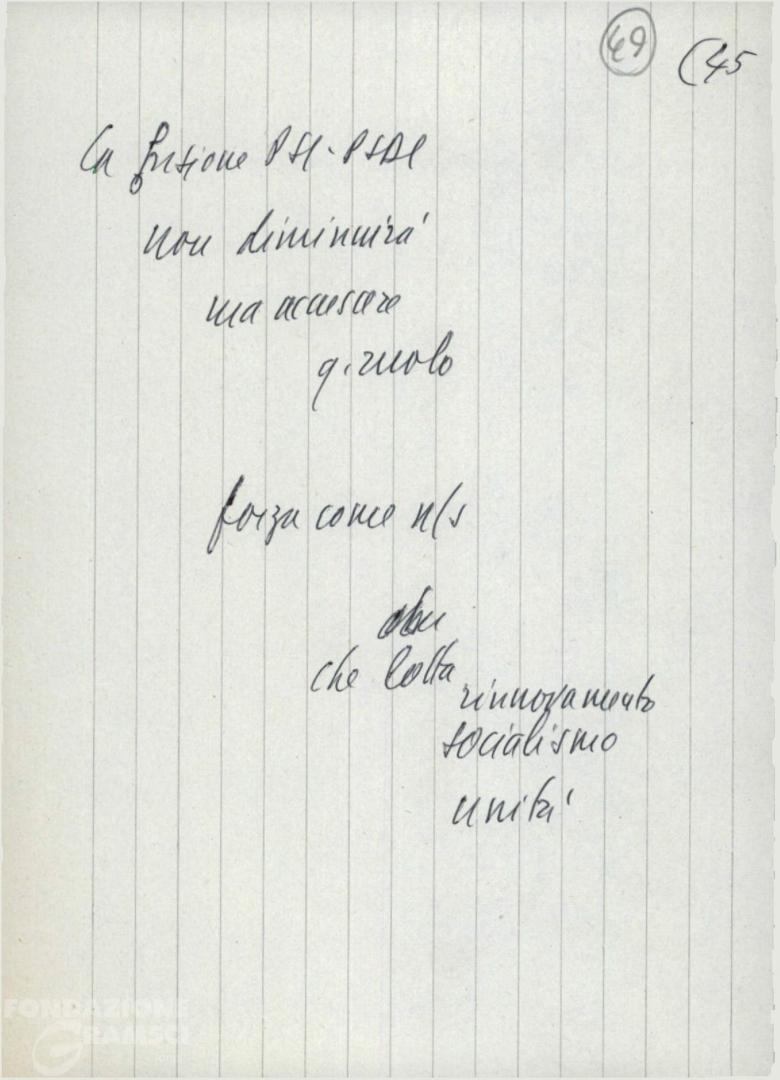 49 (45
La fusione PSI-PSDI
non diminuirà
ma accrescere
q. ruolo
forza come n/s
che lotta
rinnovamento
socialismo
unità
FONDAZIONE
GRAMSCI